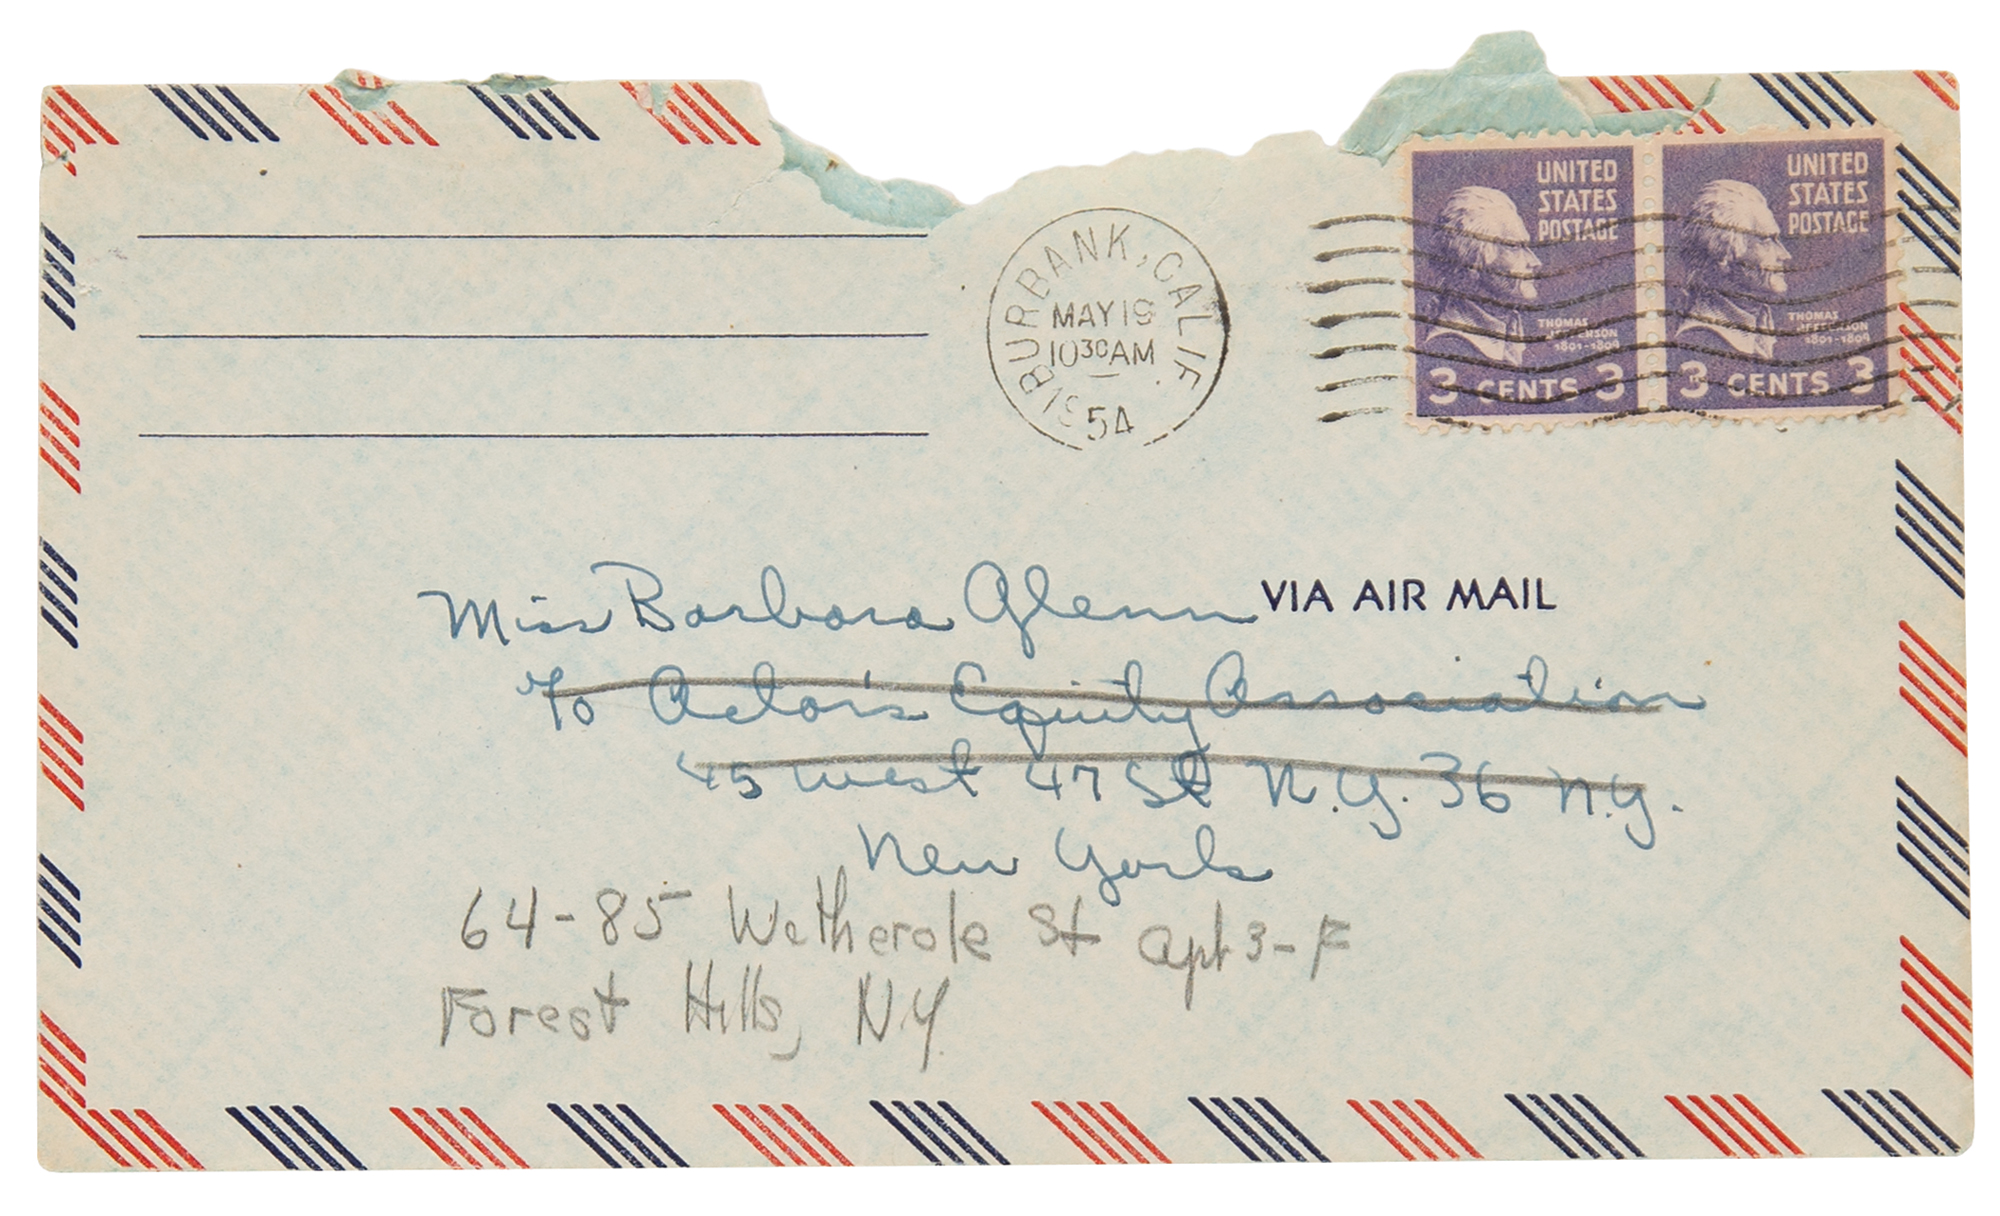 UNITED
STATES
POSTAGE
THOMAS
JEFFERSON
1801-1809
3 CENTS 3
UNITED
STATES
POSTAGE
THOMAS
JEFFERSON
1801-1809
3 CENTS 3
BURBANK, CALIF.
MAY 19
10 30 AM
54
Miss Barbara Glenn
VIA AIR MAIL
c/o Actor's Equity Association
45 west 47 St N.Y. 36 N.Y.
New York
64-85 Wetherole St apt 3-F
Forest Hills, NY